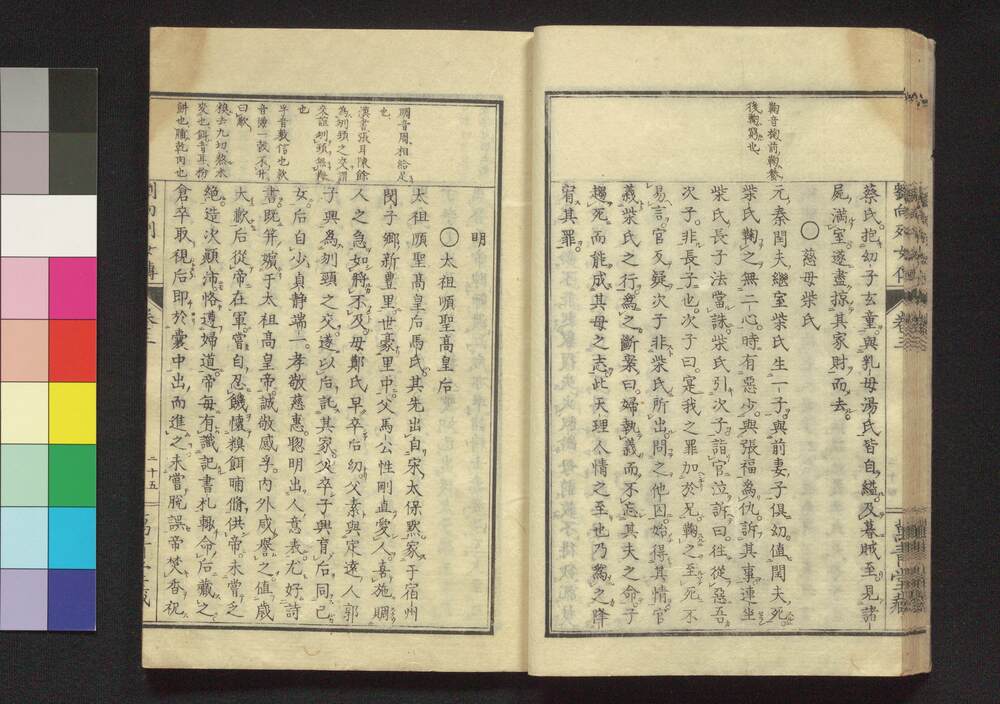 鞠音掬前鞠養
後鞠窮也
蔡氏抱幼子玄童與乳母湯氏皆自縊及暮賊至見諸
屍滿室遂盡掠其家財而去
〇慈母柴氏
元秦閏夫繼室柴氏生一子與前妻子俱幼値閏夫死
柴氏鞠之無二心時有惡少與張福為仇訴其事連坐
柴氏長子法當誅柴氏引次子詣官泣訴曰往從惡吾
次子非長子也次子曰寔我之罪加於兄鞠之至死不
易言官反疑次子非柴氏所出問之他囚始得其情官
義柴氏之行為之斷案曰婦執義而不忘其夫之命子
趨死而能成其母之志此天理人情之至也乃為之降
宥其罪
卷三
賙音周相給足
也
漢書張耳陳餘
為刎頸之交謂
交
刎頸無
也
孚音敷信也歉
音
曰歉
糗去九切熬水
也餌音耳粉
餅也脯乾肉也
明
〇太祖順聖高皇后
太祖順聖高皇后馬氏其先出自宋太保默家于宿州
閔子鄉新豊里世豪里中父馬公性剛直愛人喜施賙
人之急如將不及母鄭氏早卒后幼父素與定遠人郭
子興為刎頸之交遂以后託其家父卒子興育后同己
女后自少貞靜端一孝敬慈惠聰明出人意表尤好詩
書既笄嬪于太祖高皇帝誠敬感孚內外咸譽之值歲
大歉后從帝在軍嘗自忍饑懷糗餌脯脩供帝未嘗乏
絕造次顛沛恪遵婦道帝每有識記書札輒命后藏之
倉卒取視后即於囊中出而進之未嘗脫誤帝焚香祝
卷三
二十五